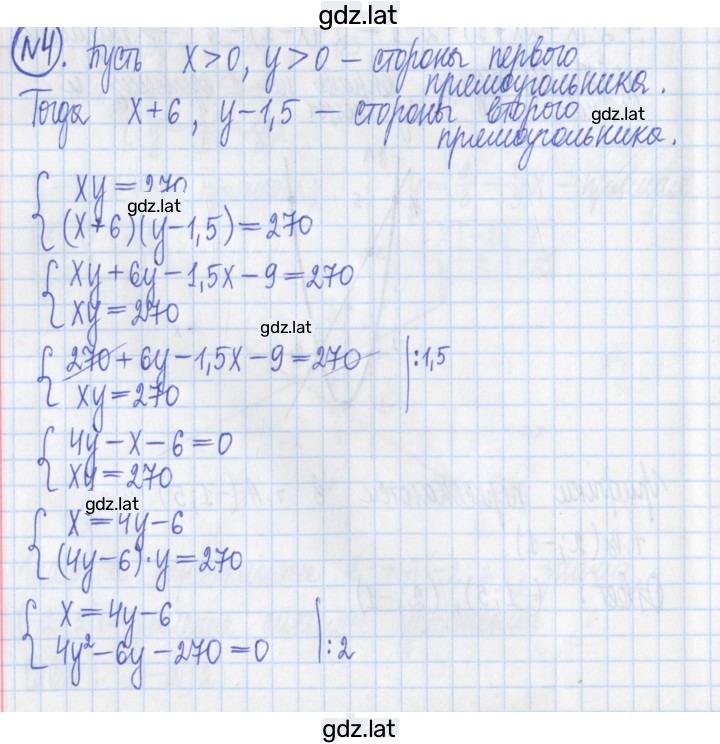 gdz.lat
№4. Пусть x>0, y>0 – стороны первого
прямоугольника.
Тогда x+6, y-1,5 – стороны второго
gdz.lat
прямоугольника.
{ xy = 270
gdz.lat
(x+6)(y-1,5)=270
{ xy+6y-1,5x-9=270
xy=270
gdz.lat
{ 270+6y-1,5x-9=270 |:1,5
xy=270
{ 4y-x-6=0
xy=270
gdz.lat
{ x=4y-6
(4y-6)·y=270
{ x=4y-6
4y²-6y-270=0 |:2
gdz.lat